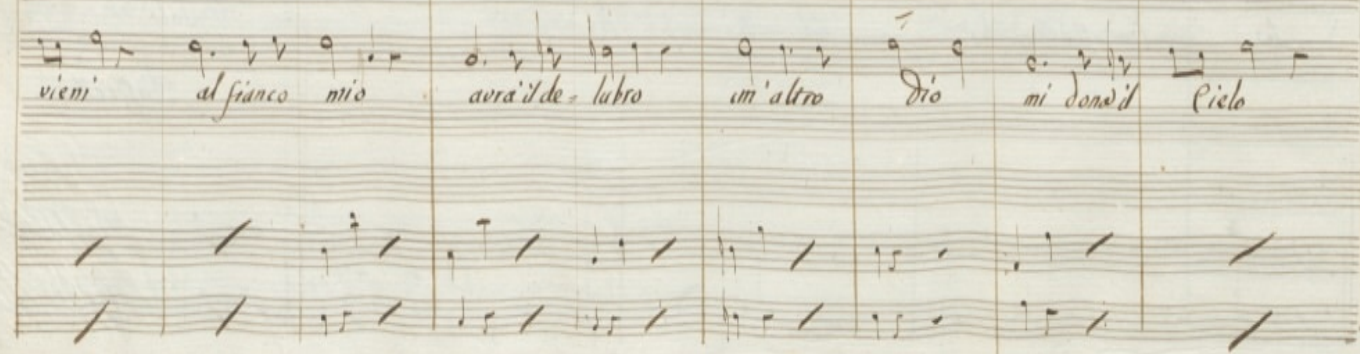 vieni al fianco mio avrà il de = lubro un' altro Dio mi dona il Cielo